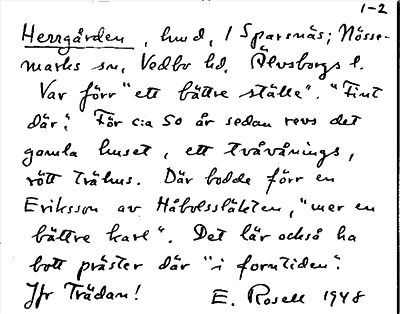 1-2
Herrgården, hmd, 1 Sparsnäs; Nösse-
marks sn, Vedbo hd, Älvsborgs l.
Var förr "ett bättre ställe". "Fint
där". För c:a 50 år sedan revs det
gamla huset, ett tvåvånings,
rött trähus. Där bodde förr en
Eriksson av Håbolssläkten, "mer en
bättre karl". Det lär också ha
bott präster där "i forntiden".
Jfr Trädan! E. Rosell 1948